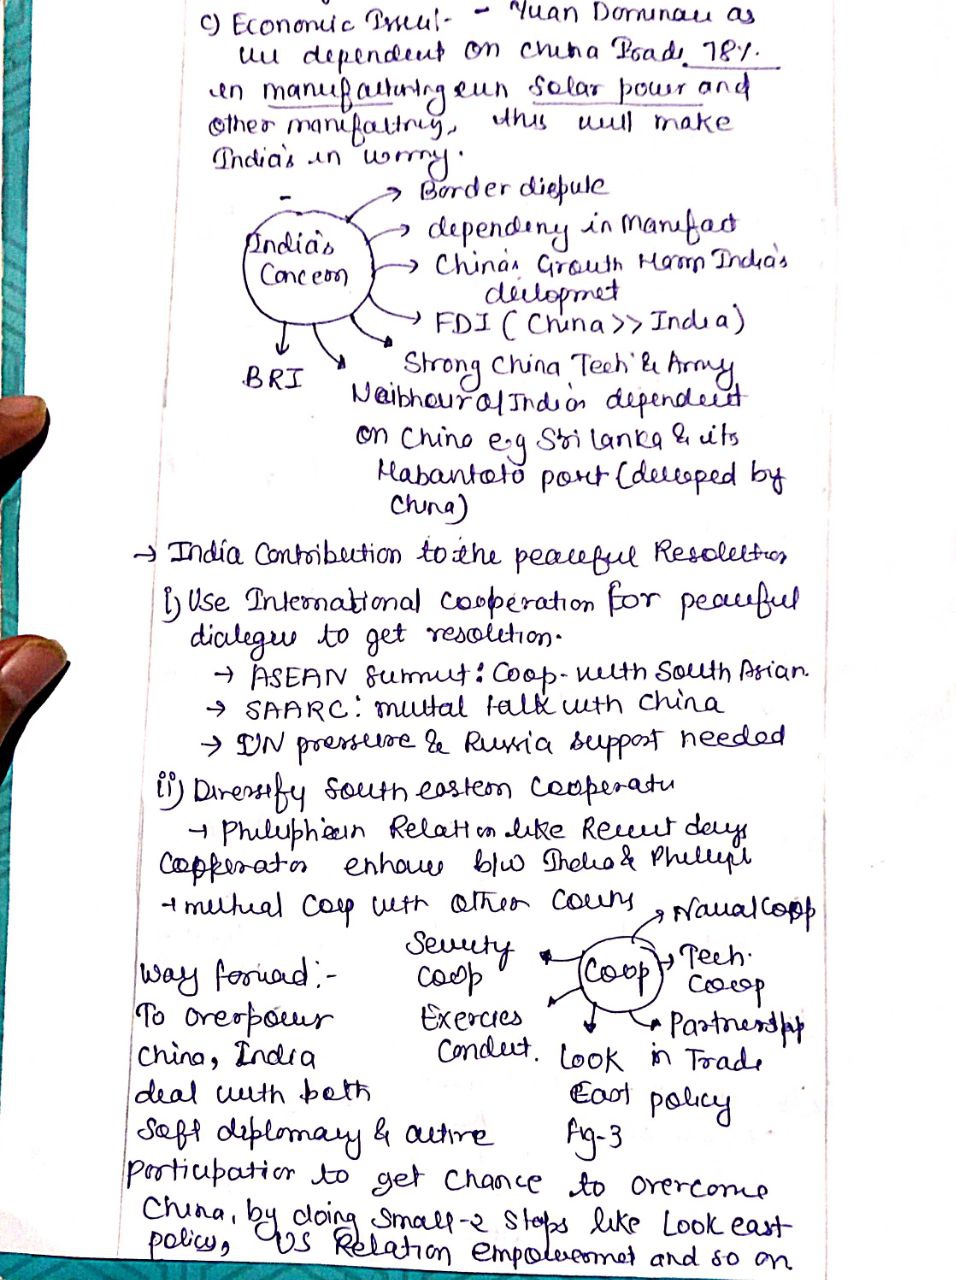 c) Economic Issue:- - Yuan Dominance as
we dependent on china Trade 78%.
in manufacturing even solar power and
other manufactring, this will make
India's in worry.
India's
Concern
→ Border dispute
→ dependeny in Manufact
→ China's Growth Harm India's
devlopmet
→ FDI ( China >> India )
Strong China Tech & Army
BRI
Neibhour of India's dependent
on China e.g Sri Lanka & its
Habantoto port (devloped by
China)
→ India Contribution to the peaceful Resolution
i) Use International cooperation for peaceful
dialogue to get resolution.
→ ASEAN Summit : Coop. with South Asian.
→ SAARC : muttal talk with China
→ UN pressure & Russia support needed
ii) Diversify South eastern Cooperatn
→ Philuphian Relation like Recent days
Copperation enhance b/w India & Phillipi
→ mutual Coop with other Counts
→ Naval Coop
Security
Coop
Coop
Tech.
Cocop
Exercies
Conduct.
Partnership
in Trade
Look
East policy
Fig-3
Way forward :-
To overpower
China, India
deal with both
Soft diplomacy & active
participation to get Chance to overcome
China, by doing small-2 steps like Look east
policy, US Relation empowerment and so on